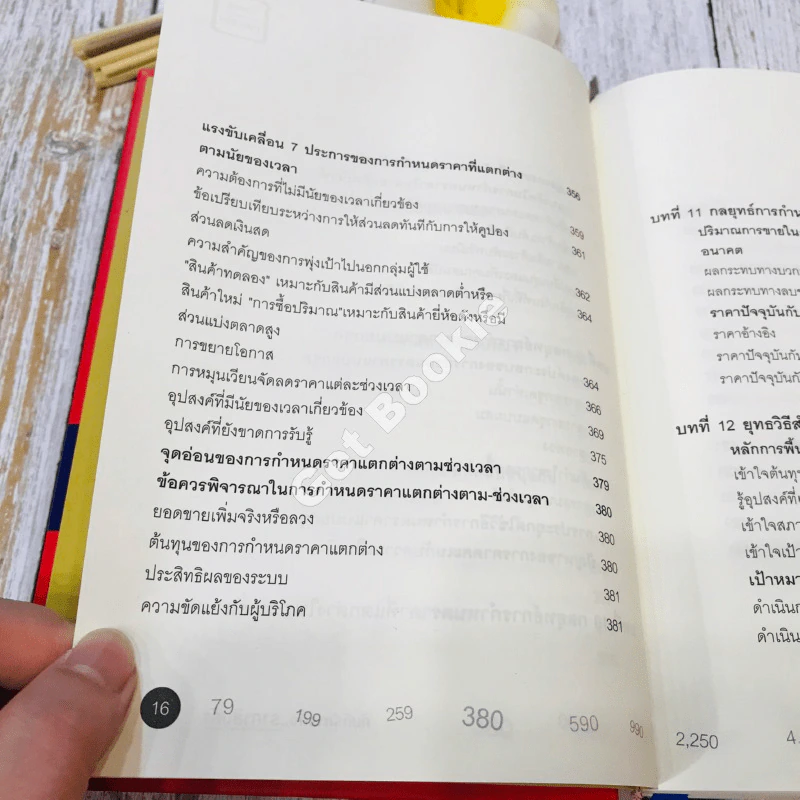 แรงขับเคลื่อน 7 ประการของการกำหนดราคาที่แตกต่าง
ตามนัยของเวลา 356
ความต้องการที่ไม่มีนัยของเวลาเกี่ยวข้อง 359
ข้อเปรียบเทียบระหว่างการให้ส่วนลดทันทีกับการให้คูปอง
ส่วนลดเงินสด 361
ความสำคัญของการพุ่งเป้าไปนอกกลุ่มผู้ใช้ 362
"สินค้าทดลอง" เหมาะกับสินค้ามีส่วนแบ่งตลาดต่ำหรือ
สินค้าใหม่ "การซื้อปริมาณ"เหมาะกับสินค้ายี่ห้อดังหรือมี
ส่วนแบ่งตลาดสูง 364
การขยายโอกาส 364
การหมุนเวียนจัดลดราคาแต่ละช่วงเวลา 366
อุปสงค์ที่มีนัยของเวลาเกี่ยวข้อง 369
อุปสงค์ที่ยังขาดการรับรู้ 375
จุดอ่อนของการกำหนดราคาแตกต่างตามช่วงเวลา 379
ข้อควรพิจารณาในการกำหนดราคาแตกต่างตาม-ช่วงเวลา 380
ยอดขายเพิ่มจริงหรือลวง 380
ต้นทุนของการกำหนดราคาแตกต่าง 380
ประสิทธิผลของระบบ 381
ความขัดแย้งกับผู้บริโภค 381
16 79 199 259 380 590 990
บทที่ 11 กลยุทธ์การกำหน
ปริมาณการขายใน
อนาคต
ผลกระทบทางบวก
ผลกระทบทางลบ
ราคาปัจจุบันกับ
ราคาอ้างอิง
ราคาปัจจุบันกับ
ราคาปัจจุบันกั
บทที่ 12 ยุทธวิธี
หลักการพื้น
เข้าใจต้นทุ
รู้อุปสงค์ที่
เข้าใจสภา
เข้าใจเป้า
เป้าหมา
ดำเนินก
ดำเนิน
2,250 4
Got Bookie